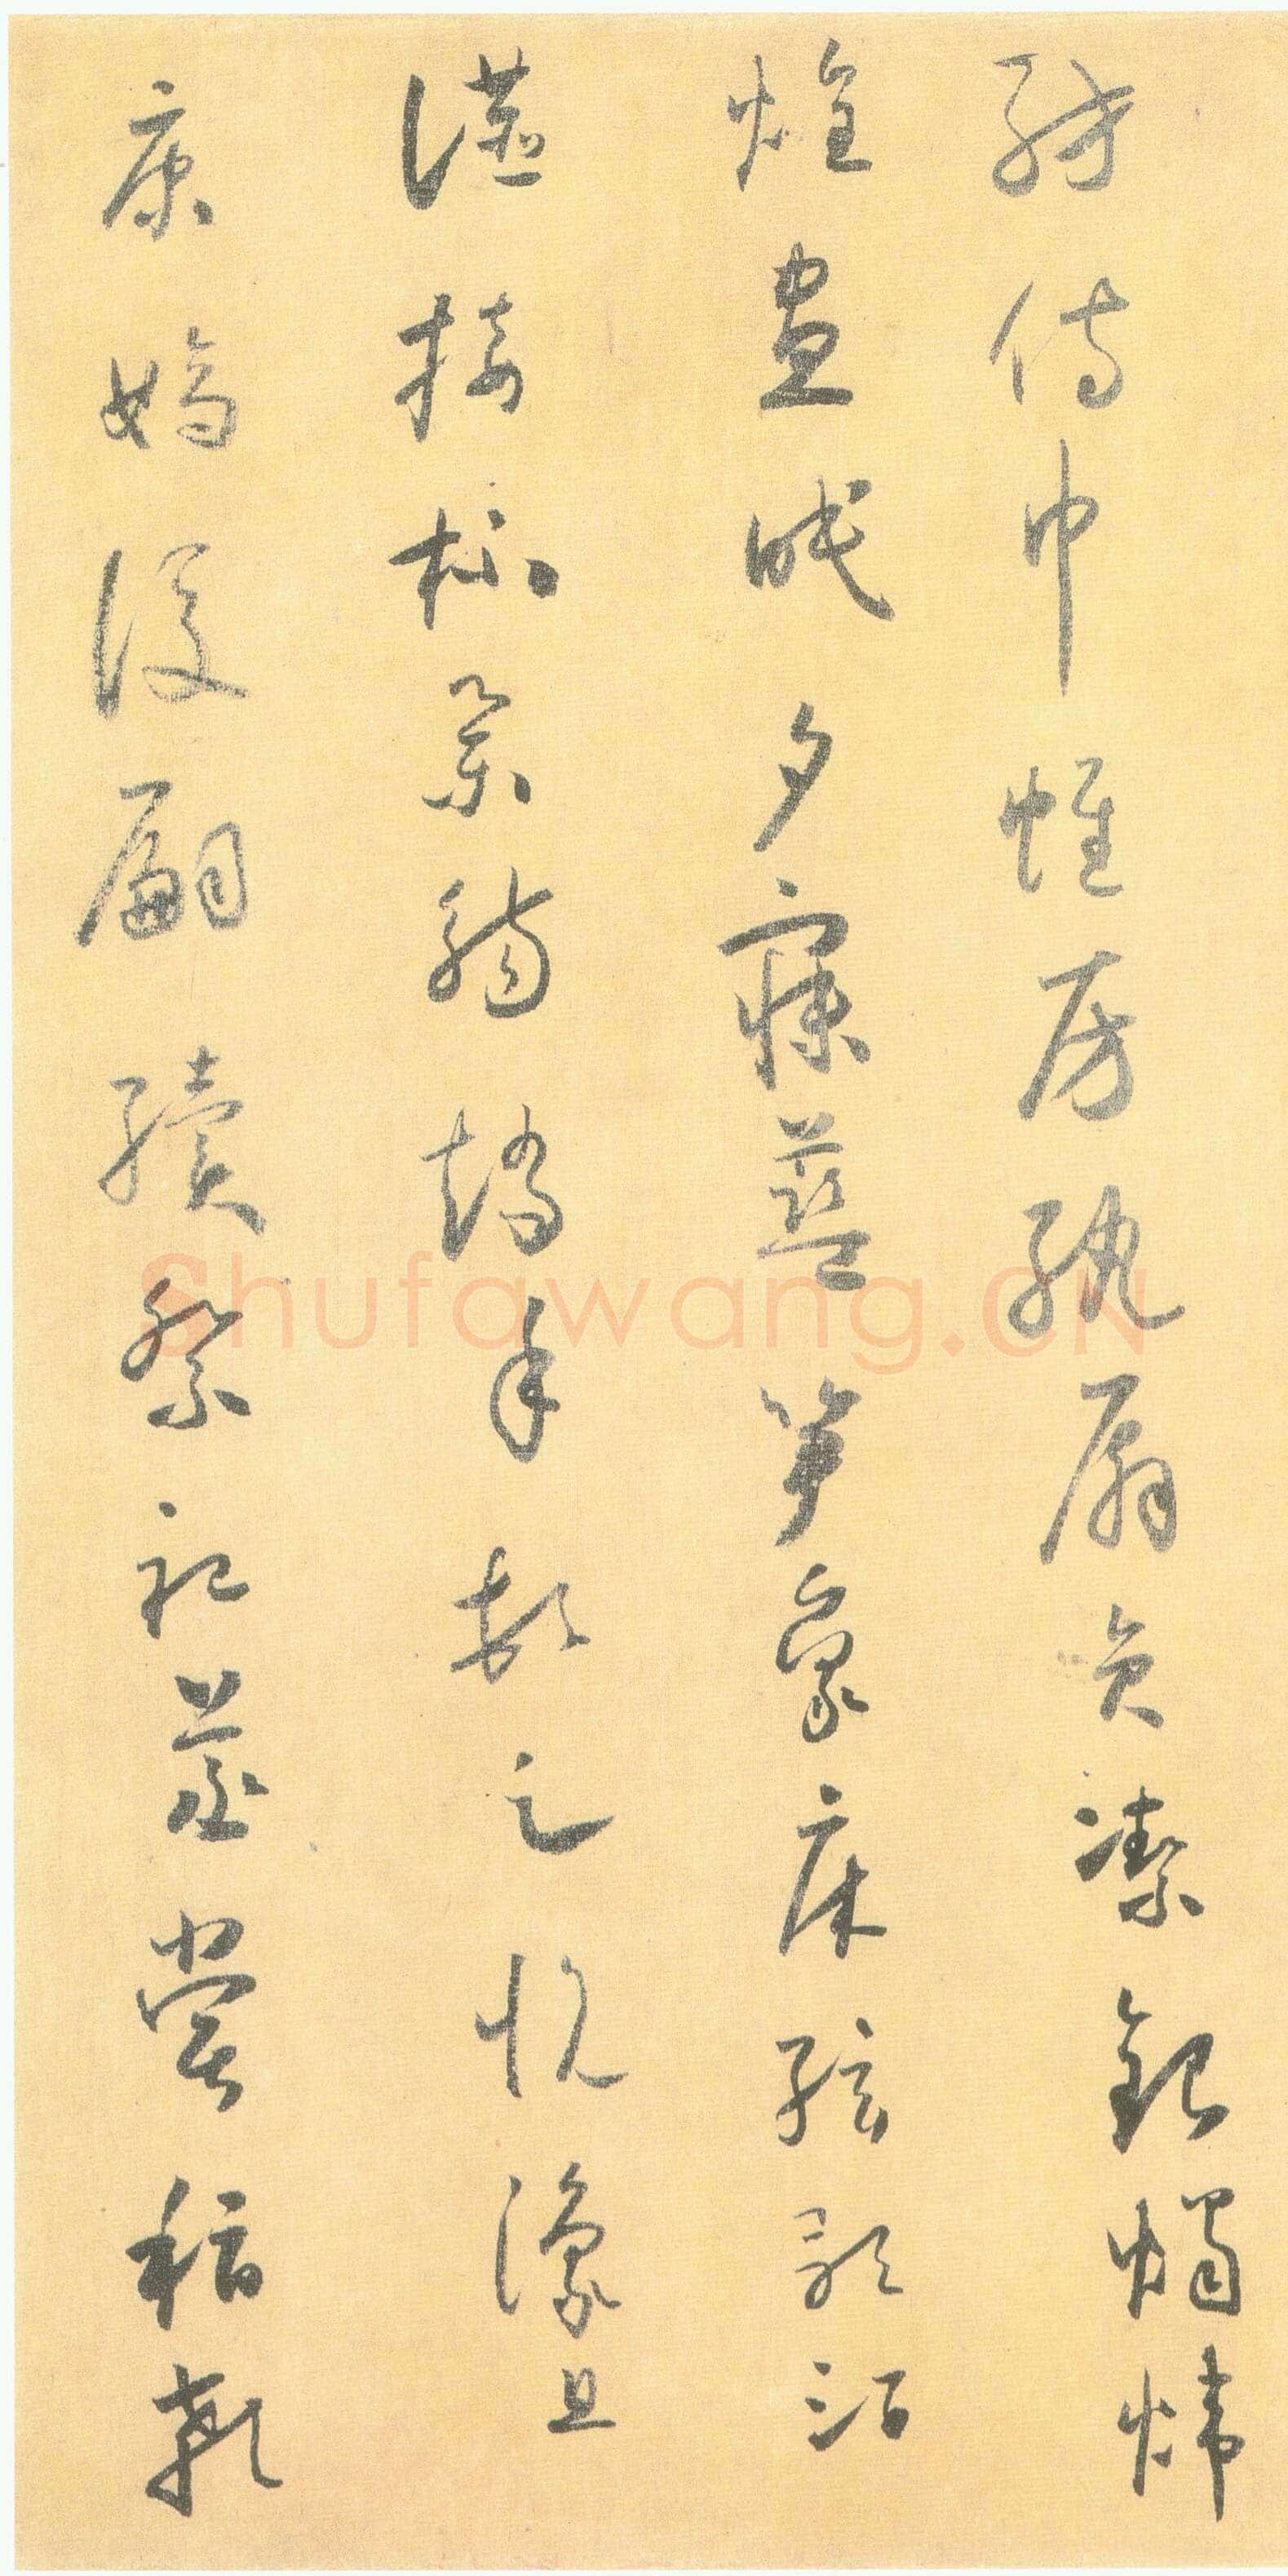 紡侍巾帷房紈扇員潔銀燭煒
煌晝眠夕寐藍笋象床絃歌酒
讌接杯舉觴矯手頓足悅豫且
康嫡後嗣續祭祀蒸嘗稽顙
Shufawang.CN